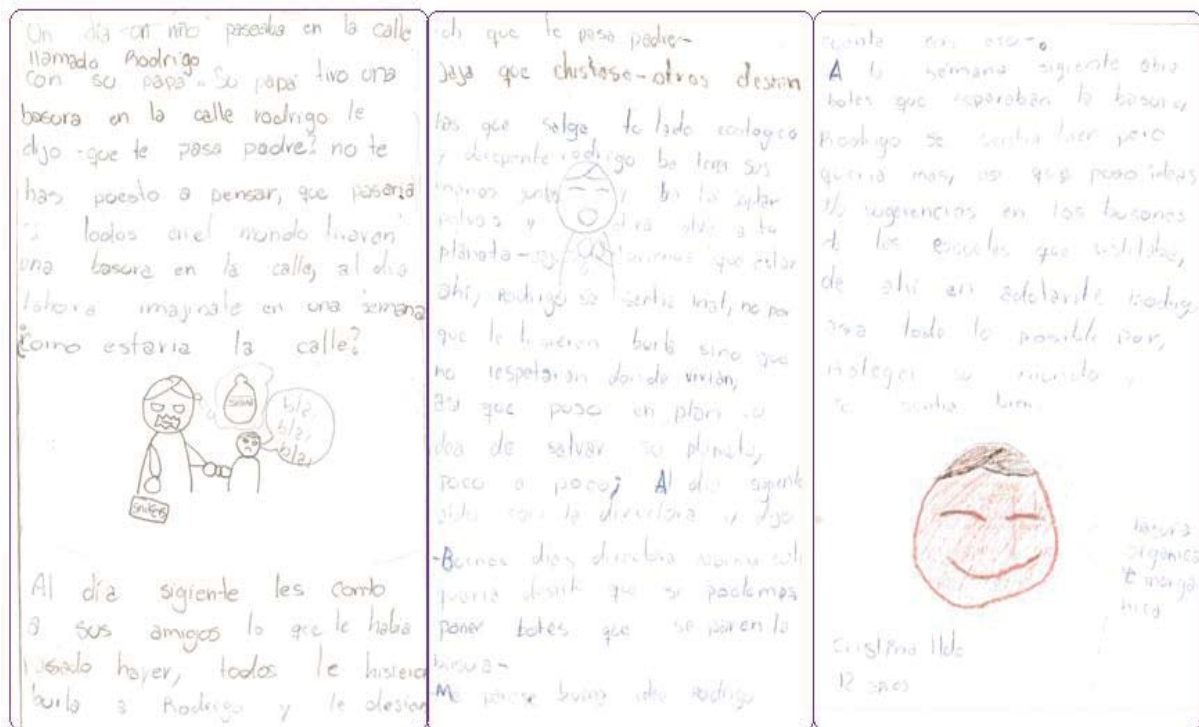 Un día un niño paseaba en la calle
llamado Rodrigo
con su papá. Su papá tiro una
basura en la calle rodrigo le
dijo -que te pasa padre? no te
has puesto a pensar, que pasaria
si todos en el mundo tiraran
una basura en la calle, al dia
imajinate en una semana
¿Como estaria la calle?
bla,
bla,
bla,
Al día sigiente les conto
a sus amigos lo que le habia
pasado hayer, todos le hisieron
burla a Rodrigo y le desian
que te pasa padre-
jaja que chistoso-otros desian
las que salga tu lado ecologico
y derepente rodrigo
manos
polvos y
planeta-
ahi, Rodrigo se sentia mal, no por
que le hisieran burla sino que
no respetaran donde vivian,
asi que puso en plan su
idea de salvar su planeta,
poco a poco; Al dia sigiente
con la directora y dijo
-Buenos dias directora
queria desirle que si podemos
poner botes que se paren la
basura-
-Me parese buena idea Rodrigo
cuenta con eso-.
A la semana sigiente abia
botes que separaban la basura,
Rodrigo se sentia bien pero
queria mas, asi que puso ideas
y/o sugerencias en los busones
de las escuelas que visitaba,
de ahi en adelante Rodrigo
asia todo lo posible por,
proteger su mundo y
se sentia bien.
basura
organica
e inorga
nica
Cristina
12 años